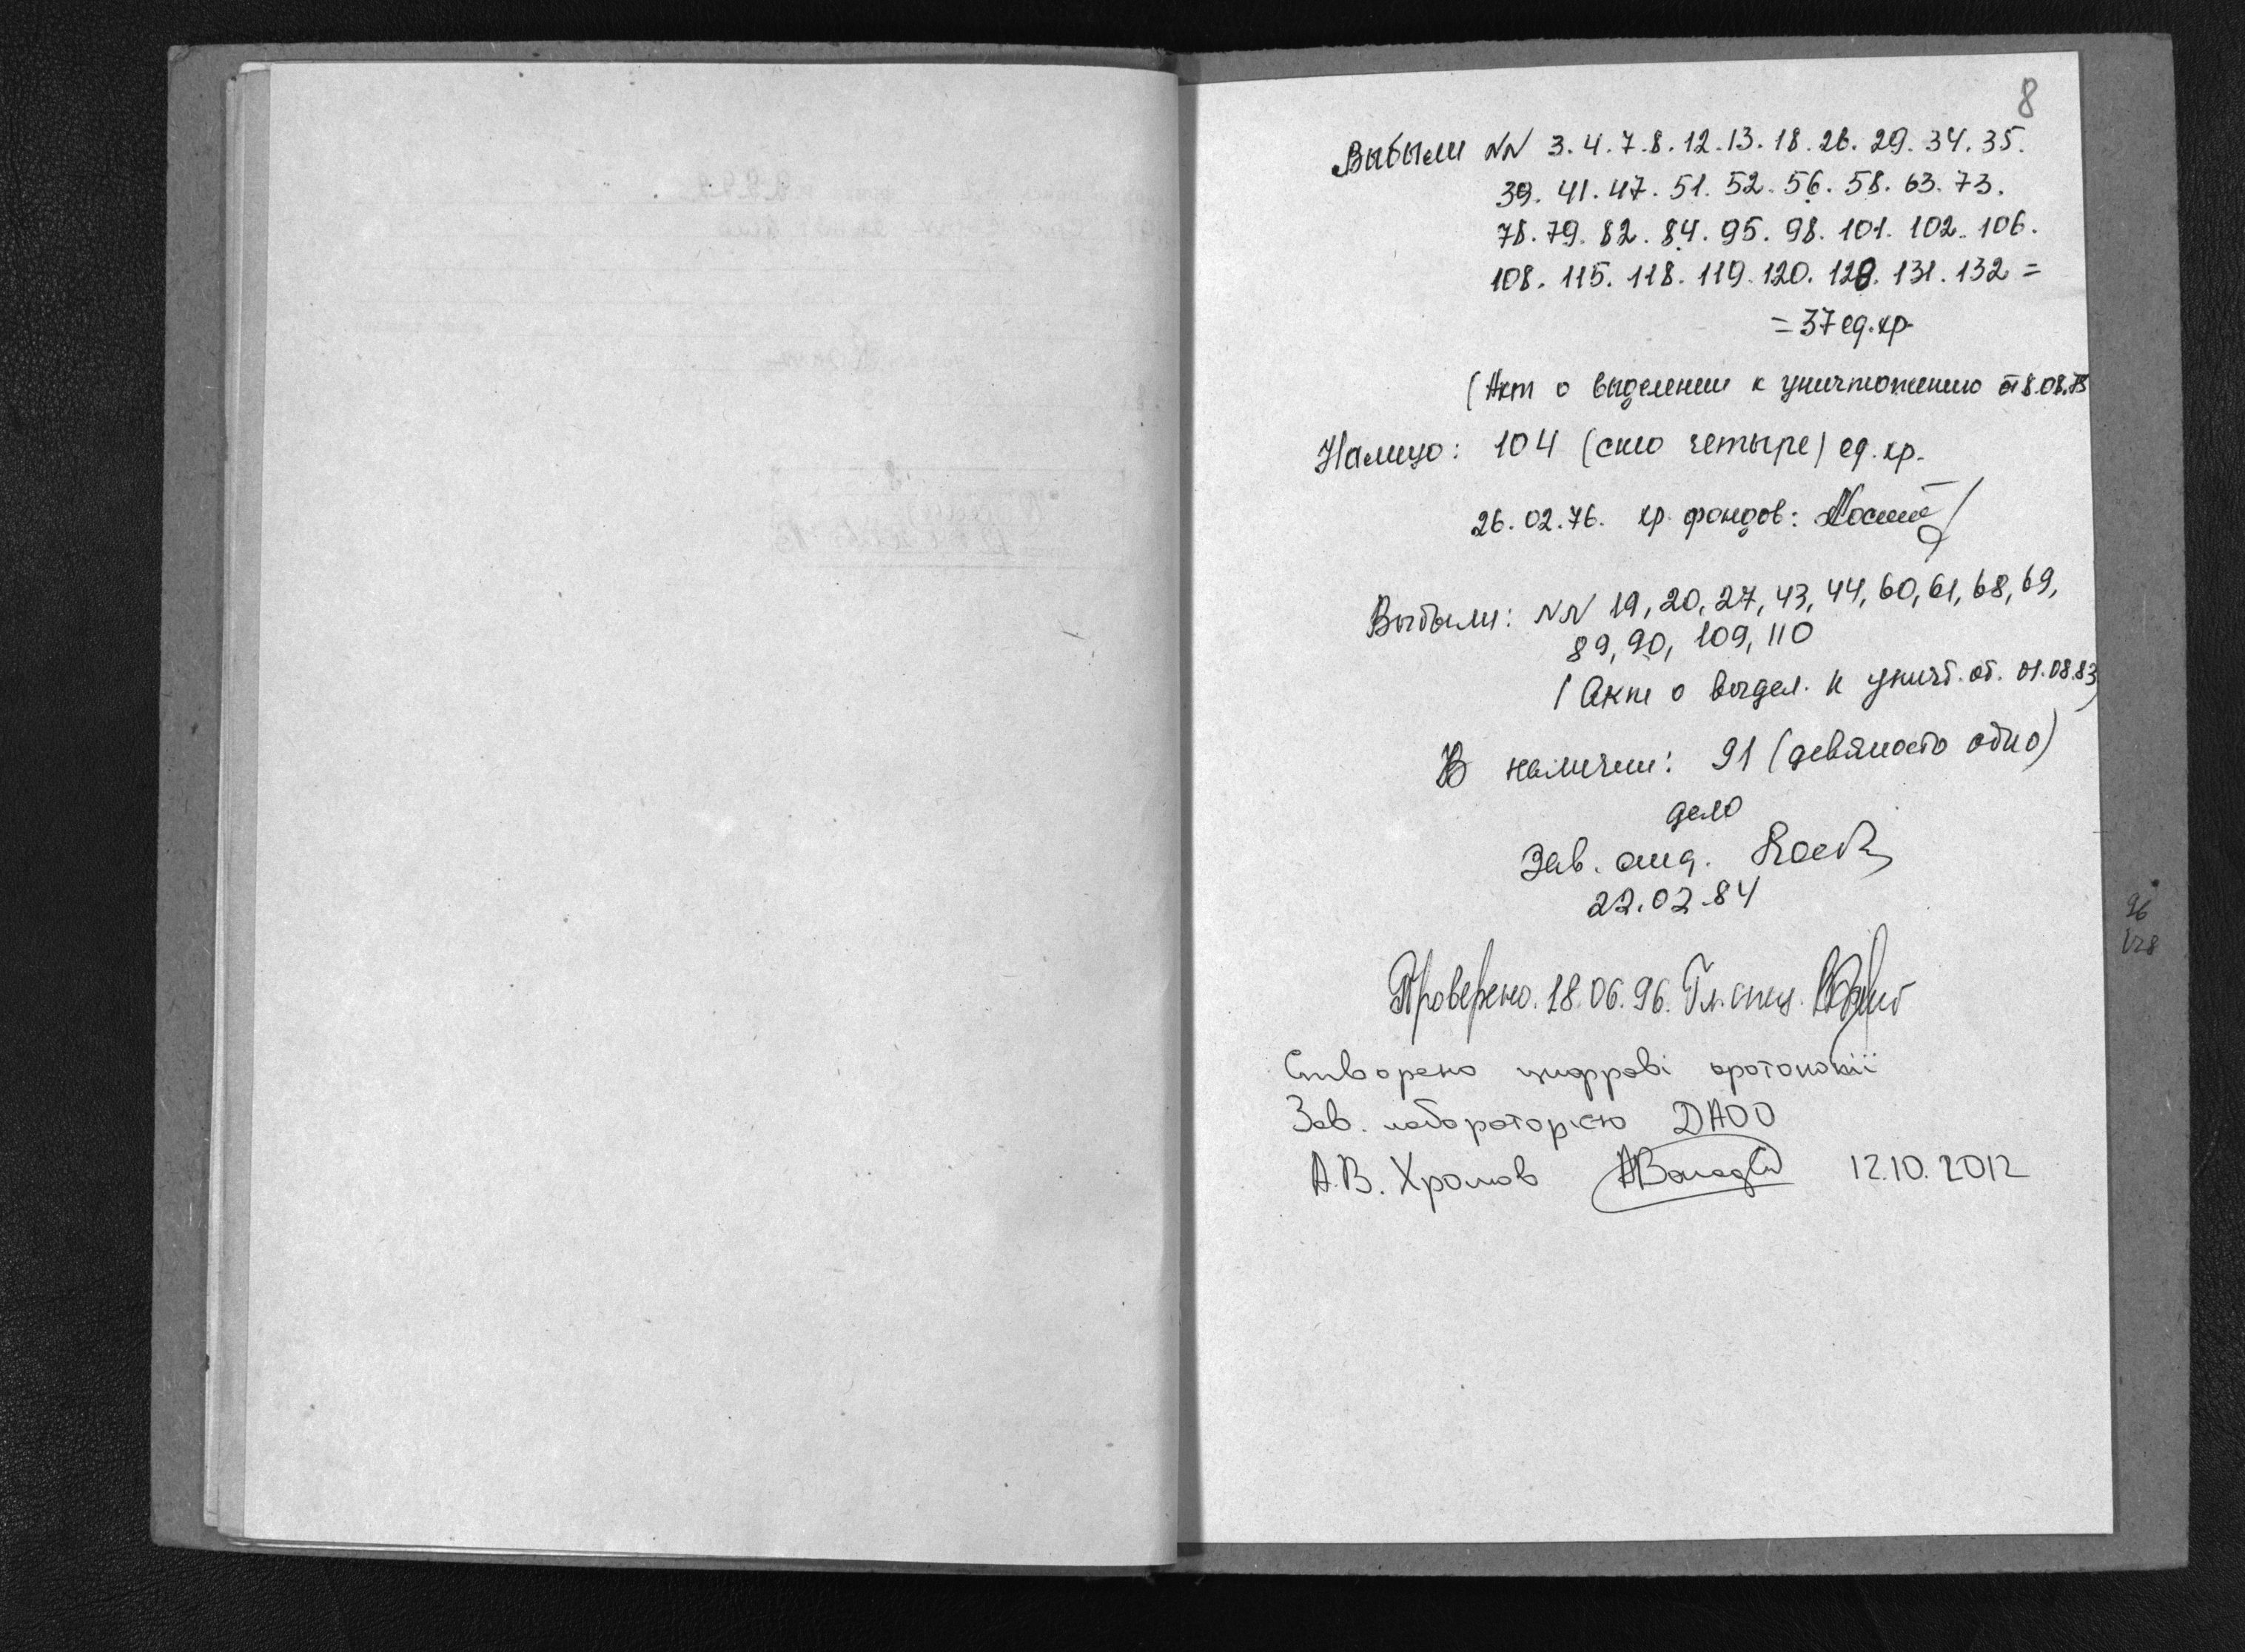 8
Выбыли NN 3. 4. 7. 8. 12. 13. 18. 26. 29. 34. 35.
39. 41. 47. 51. 52. 56. 58. 63. 73.
78. 79. 82. 84. 95. 98. 101. 102. 106.
108. 115. 118. 119. 120. 128. 131. 132 =
= 37 ед. хр.
(Акт о выделении к уничтожению от 8.08.75
Налицо: 104 (сто четыре) ед. хр.
26.02.76. хр. фондов:
Выбыли: NN 19, 20, 27, 43, 44, 60, 61, 68, 69,
89, 90, 109, 110
(Акт о выдел. к уничт. от. 01.08.83)
В наличии: 91 (девяносто одно)
дело
Зав. отд.
22.02.84
Проверено. 18.06.96. Гл. спец.
Створено цифрові фотокопії
Зав. лабораторією ДАОО
А.В. Хромов 12.10.2012
96